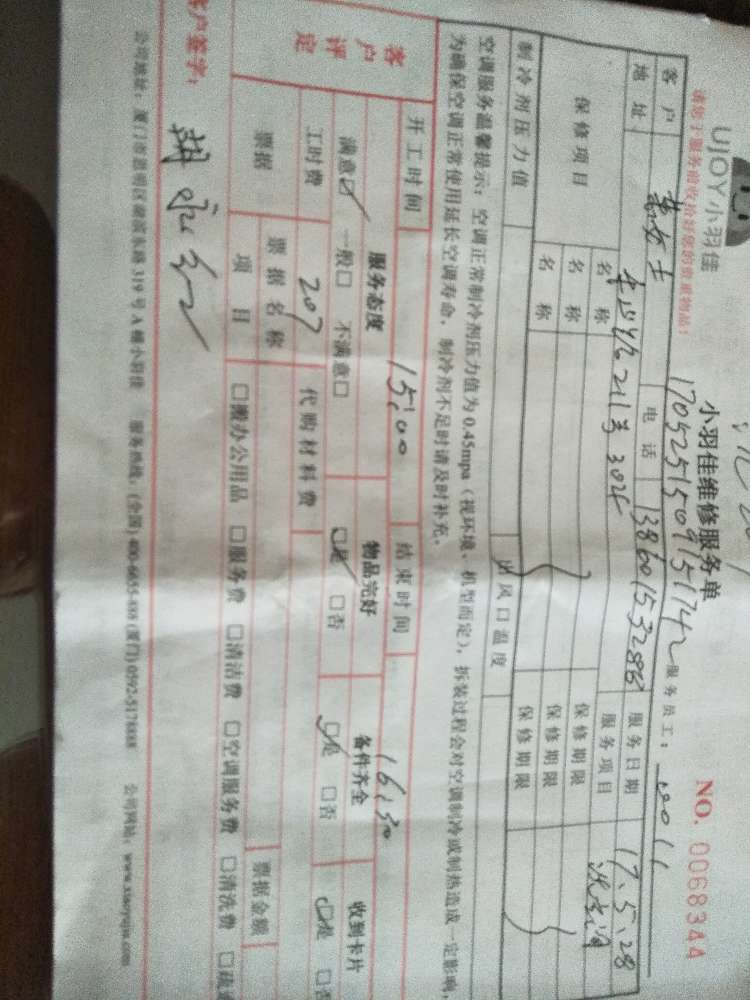 UJOY小羽佳
小羽佳维修服务单
NO. 0068344
请您于服务前收拾好您的贵重物品!
1705251509151742
服务员工:
客户
电话 13860153286
服务日期 17.5.28
地址
211号302
服务项目
保修项目
名称
保修期限
名称
保修期限
名称
保修期限
制冷剂压力值
出风口温度
空调服务温馨提示:空调正常制冷剂压力值为0.45mpa(视环境、机型而定),拆装过程会对空调制冷或制热造成一定影响,
为确保空调正常使用延长空调寿命,制冷剂不足时请及时补充。
开工时间 15:00 结束时间 16:30
客户评定
服务态度 物品完好 备件齐全 收到卡片
满意☑ 一般□ 不满意□ ☑是 □否 ☑是 □否 ☑是 □否
工时费 207 代购材料费
票据 票据名称 票据金额
项目 □搬办公用品 □服务费 □清洁费 □空调服务费 □清洗费
客户签字:
公司地址:厦门市思明区湖滨东路319号A幢小羽佳 服务热线:(全国) 400-6655-888 (厦门) 0592-5178888 公司网站:www.xiaoyujia.com